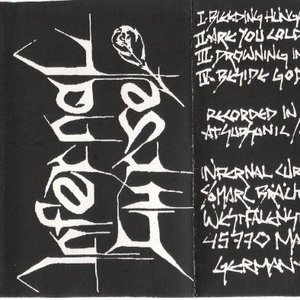 Infernal
Curse
I. BLEEDING HUNG
II. ARE YOU COLD
III. DROWNING IN
IV. BESIDE GOD
RECORDED IN
AT SUBSONIC /
INFERNAL CUR
WESTFALENST
45770 MA
GERMANY